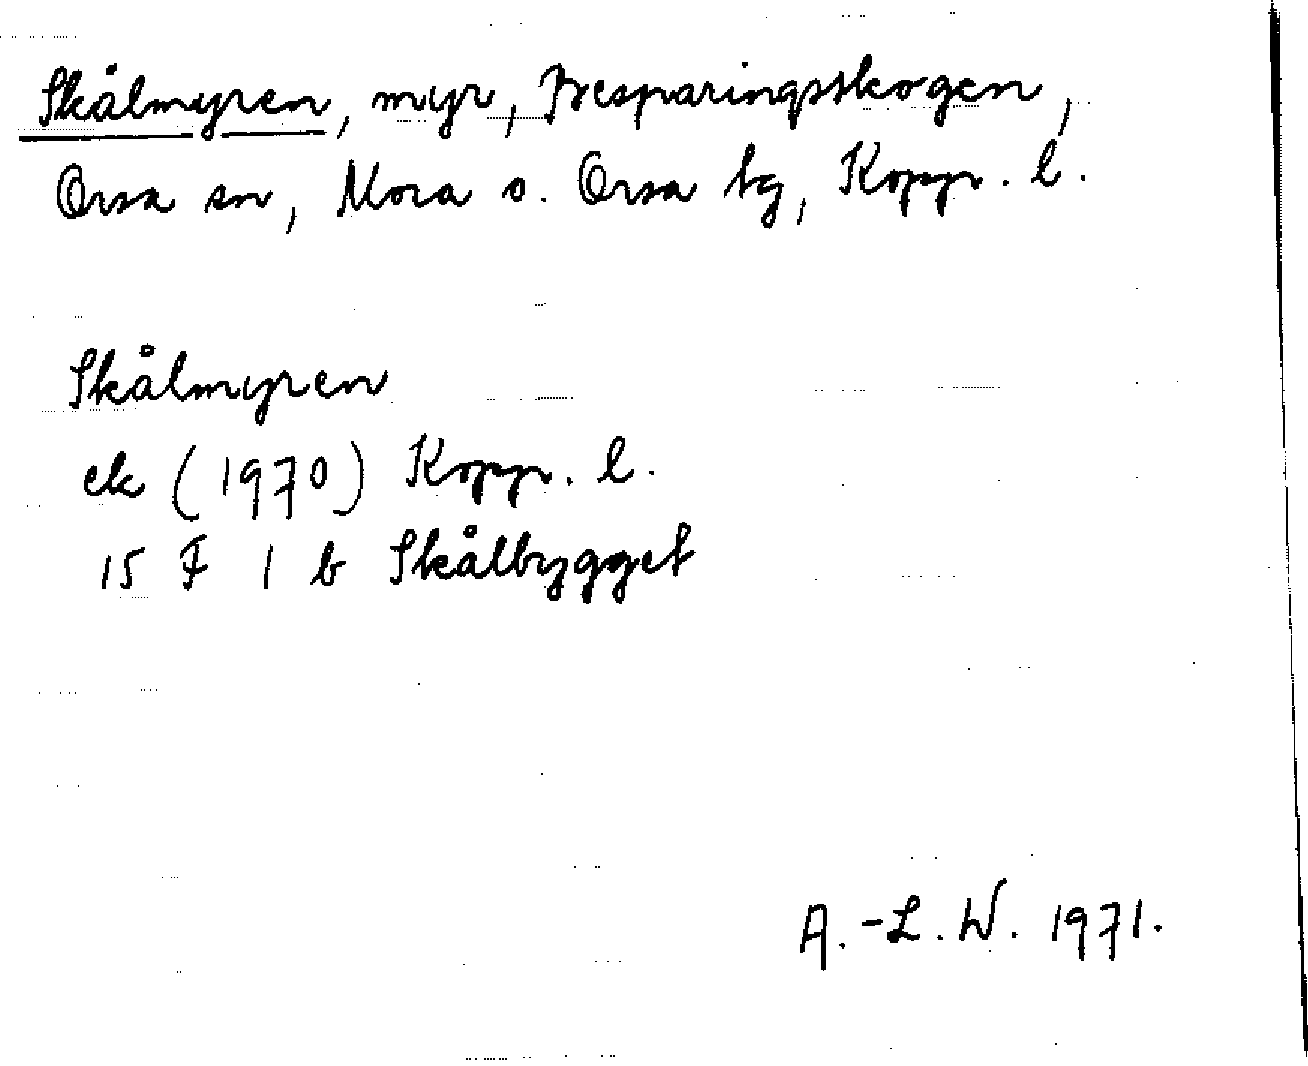 Skålmyren, myr, Besparingsskogen,
Orsa sn, Mora o. Orsa tg, Kopp. l.
Skålmyren
ek (1970) Kopp. l.
15 F 1 b Skålbygget
A.-L. W. 1971.